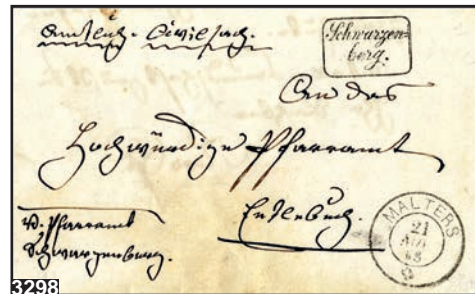 Amtlich. Civilsach.
Schwarzen-
berg.
An das
Hochwürdige Pfarramt
Entlebuch.
v. Pfarramt
Schwarzenberg.
MALTERS
21
3298